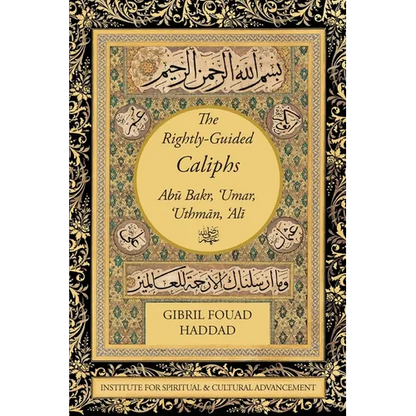 بسم الله الرحمن الرحيم
The
Rightly-Guided
Caliphs
Abū Bakr, ʿUmar,
ʿUthmān, ʿAlī
وما ارسلناك الا رحمة للعالمين
GIBRIL FOUAD
HADDAD
INSTITUTE FOR SPIRITUAL & CULTURAL ADVANCEMENT